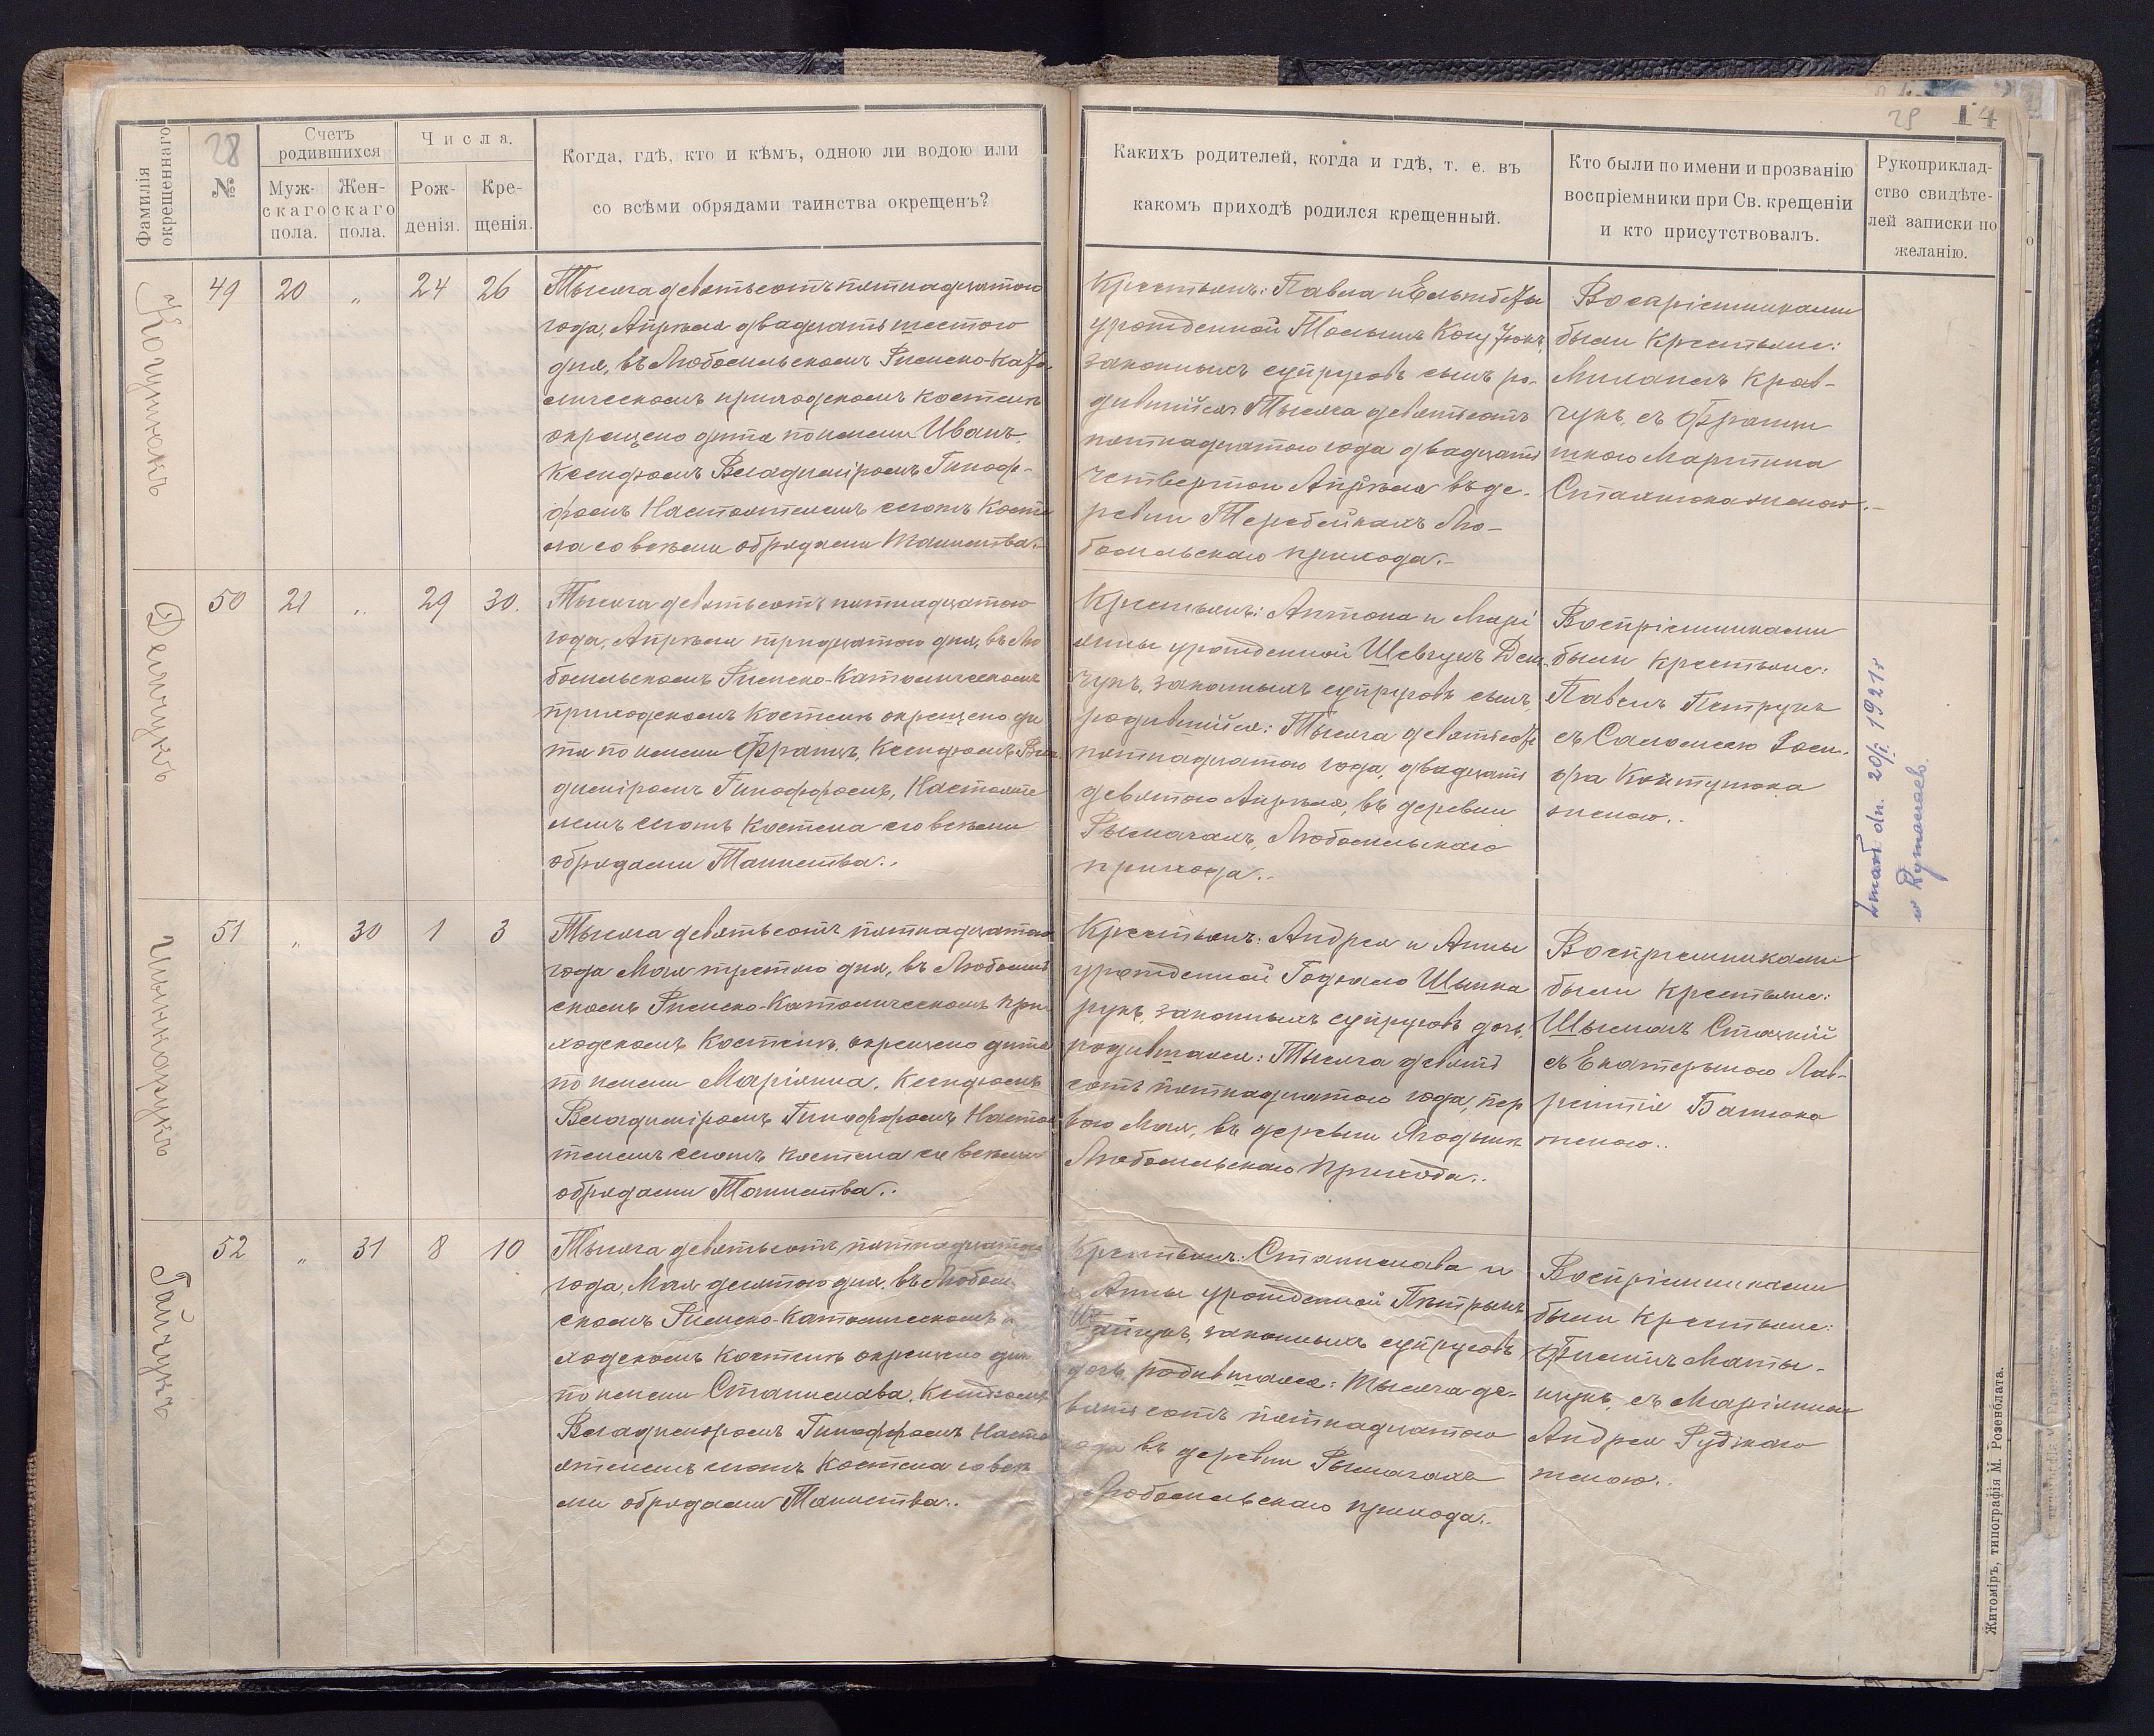 28
29 14
Фамилія окрещеннаго
№
Счетъ родившихся
Муж-скаго пола.
Жен-скаго пола.
Числа.
Рож-денія.
Кре-щенія.
Когда, гдѣ, кто и кѣмъ, одною ли водою или
со всѣми обрядами таинства окрещенъ?
Какихъ родителей, когда и гдѣ, т. е. въ
какомъ приходѣ родился крещенный.
Кто были по имени и прозванію
воспріемники при Св. крещеніи
и кто присутствовалъ.
Рукоприклад-
ство свидѣте-
лей записки по
желанію.
49 20 „ 24 26
Тысяча девятьсотъ пятнадцатого
года, Апрѣля двадцать шестого
дня, въ Любомльскомъ Римско-Като-
лическомъ приходскомъ костелѣ
окрещено дитя по имени Иванъ.
Ксендзомъ Владиміромъ Гиноф-
фомъ Настоятелемъ сего Косте
ла со всѣми обрядами Таинства.-
Крестьянъ: Павла и Ельжбѣты
урожденной
законныхъ супруговъ сынъ ро-
дившійся Тысяча девятьсотъ
пятнадцатого года двадцать
четвертого Апрѣля въ де-
ревни Теребейкахъ Лю-
бомльскаго прихода.-
Воспріемниками
были Крестьяне:
Михаилъ Крав-
чукъ, съ Франци
шкою Мартина
женою.-
Демчукъ
50 21 „ 29 30.
Тысяча девятьсотъ пятнадцатого
года, Апрѣля тридцатого дня, въ Лю
бомльскомъ Римско-Католическомъ
приходскомъ Костелѣ окрещено ди
тя по имени Францъ, Ксендзомъ Вла
диміромъ Гиноффомъ, Настояте
лемъ сего Костела со всѣми
обрядами Таинства..
Крестьянъ: Антона и Марі
янны урожденной Шевчукъ Дем
чукъ, законныхъ супруговъ сынъ,
родившійся: Тысяча девятьсотъ
пятнадцатого года, двадцать
девятого Апрѣля, въ деревни
Рымачахъ, Любомльскаго
прихода..
Воспріемниками
были Крестьяне:
Павелъ Петрукъ
съ Саломеею Іоси-
фа
женою..
zmarł dn. 20/I. 1921 r
w Rymaczach.
51 „ 30 1 3
Тысяча девятьсотъ пятнадцатого
года Мая третьяго дня, въ Любомль
скомъ Римско-Католическомъ при
ходскомъ Костелѣ, окрещено дитя
по имени Маріянна. Ксендзомъ
Владиміромъ Гиноффомъ Настоя
телемъ сего Костела со всѣми
обрядами Таинства..
Крестьянъ: Андрея и Анны
урожденной Шинка
рукъ, законныхъ супруговъ дочь,
родившаяся: Тысяча девять
сотъ пятнадцатого года, пер
вого Мая, въ деревни Ягодинѣ
Любомльскаго Прихода..
Воспріемниками
были Крестьяне:
съ Екатериною Лав-
рентія
женою..
Гайчукъ
52 „ 31 8 10
Тысяча девятьсотъ пятнадцатого
года, Мая десятого дня, въ Любомль
скомъ Римско-Католическомъ при
ходскомъ Костелѣ окрещено дитя
по имени Станислава, Ксендзомъ
Владиміромъ Гиноффомъ Насто
ятелемъ сего Костела со всѣ
ми обрядами Таинства..
Крестьянъ: Станислава и
Анны урожденной Петрукъ
законныхъ супруговъ
дочь, родившаяся: Тысяча де-
вятьсотъ пятнадцатого
года въ деревни Рымачахъ
Любомльскаго прихода..
Воспріемниками
были Крестьяне:
съ Маріянною
Андрея Рудзкаго
женою..
Житоміръ, типографія М. Розенблата.